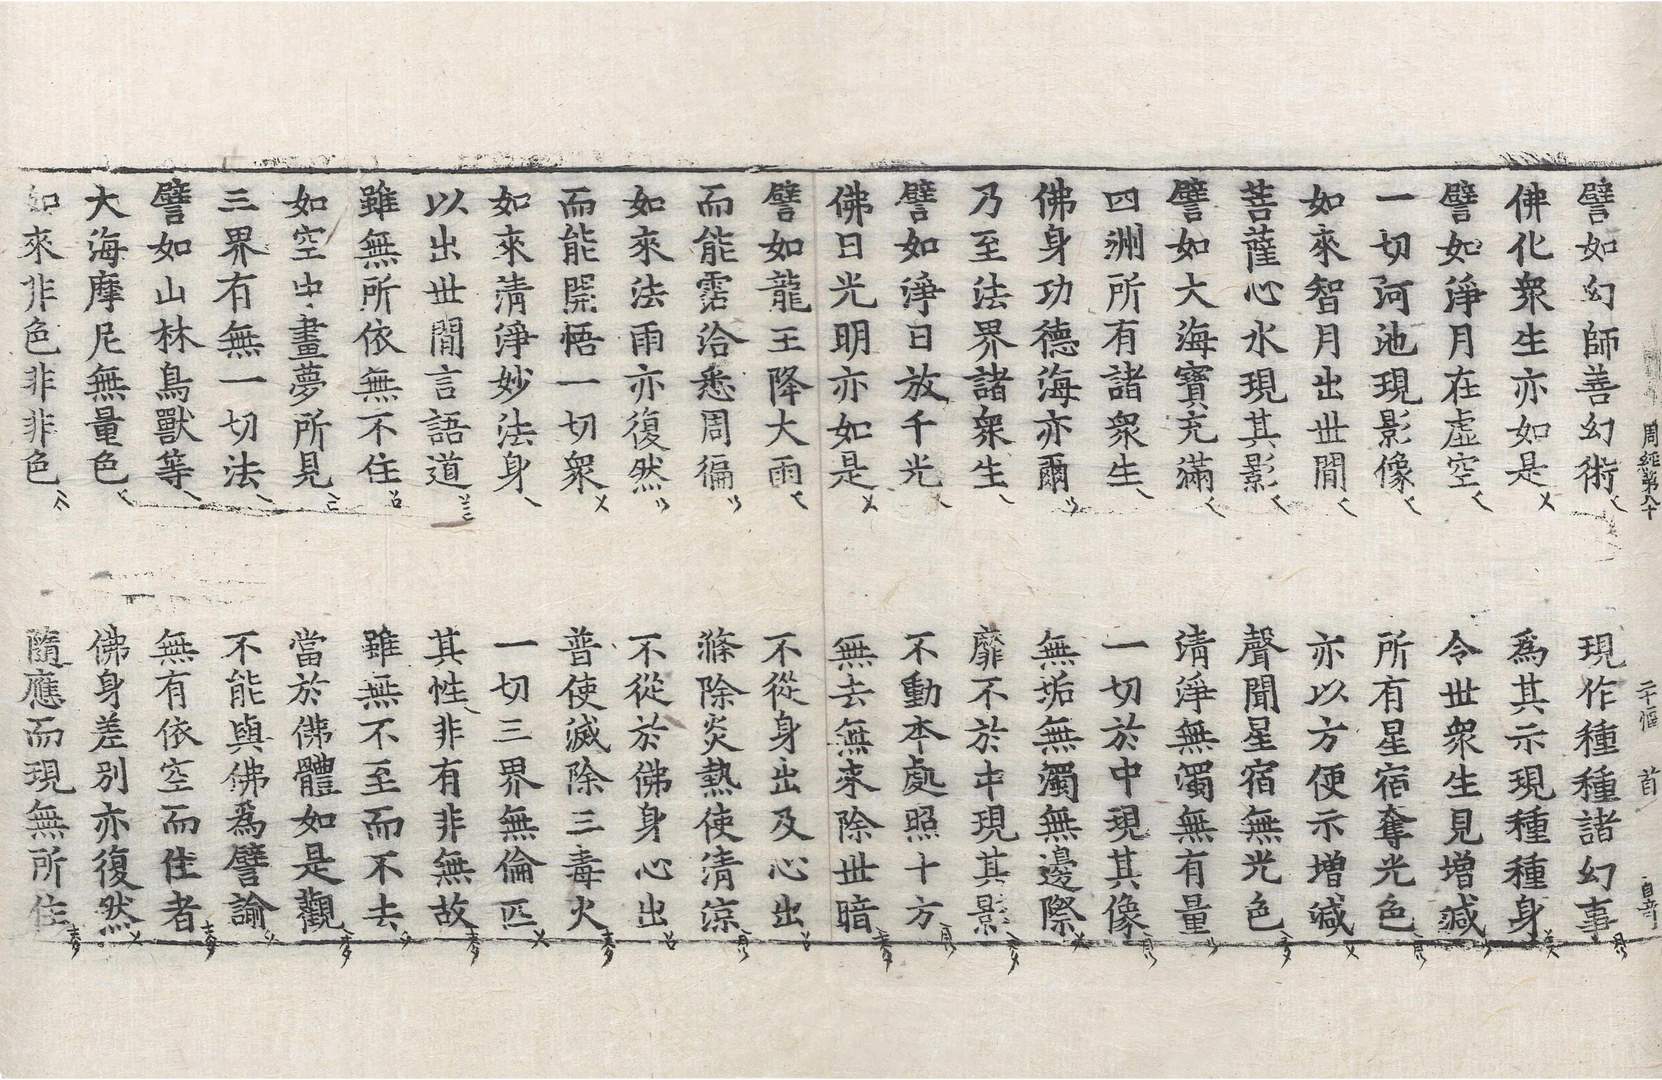 周經第八十 二十幅 首
譬如幻師善幻術 現作種種諸幻事
佛化衆生亦如是 爲其示現種種身
譬如淨月在虛空 令世衆生見增減
一切河池現影像 所有星宿奪光色
如來智月出世間 亦以方便示增減
菩薩心水現其影 聲聞星宿無光色
譬如大海寶充滿 清淨無濁無有量
四洲所有諸衆生 一切於中現其像
佛身功德海亦爾 無垢無濁無邊際
乃至法界諸衆生 靡不於中現其影
譬如淨日放千光 不動本處照十方
佛日光明亦如是 無去無來除世暗
譬如龍王降大雨 不從身出及心出
而能霑洽悉周徧 滌除炎熱使清涼
如來法雨亦復然 不從於佛身心出
而能開悟一切衆 普使滅除三毒火
如來清淨妙法身 一切三界無倫匹
以出世間言語道 其性非有非無故
雖無所依無不住 雖無不至而不去
如空中畫夢所見 當於佛體如是觀
三界有無一切法 不能與佛爲譬諭
譬如山林鳥獸等 無有依空而住者
大海摩尼無量色 佛身差別亦復然
如來非色非非色 隨應而現無所住